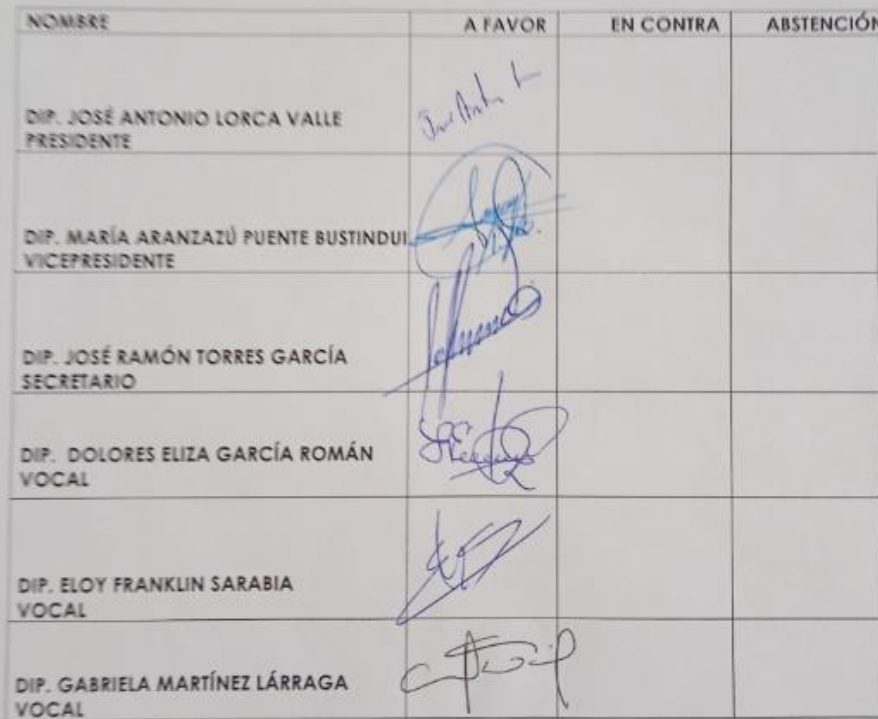 NOMBRE A FAVOR EN CONTRA ABSTENCIÓN
DIP. JOSÉ ANTONIO LORCA VALLE
PRESIDENTE
DIP. MARÍA ARANZAZÚ PUENTE BUSTINDUI
VICEPRESIDENTE
DIP. JOSÉ RAMÓN TORRES GARCÍA
SECRETARIO
DIP. DOLORES ELIZA GARCÍA ROMÁN
VOCAL
DIP. ELOY FRANKLIN SARABIA
VOCAL
DIP. GABRIELA MARTÍNEZ LÁRRAGA
VOCAL